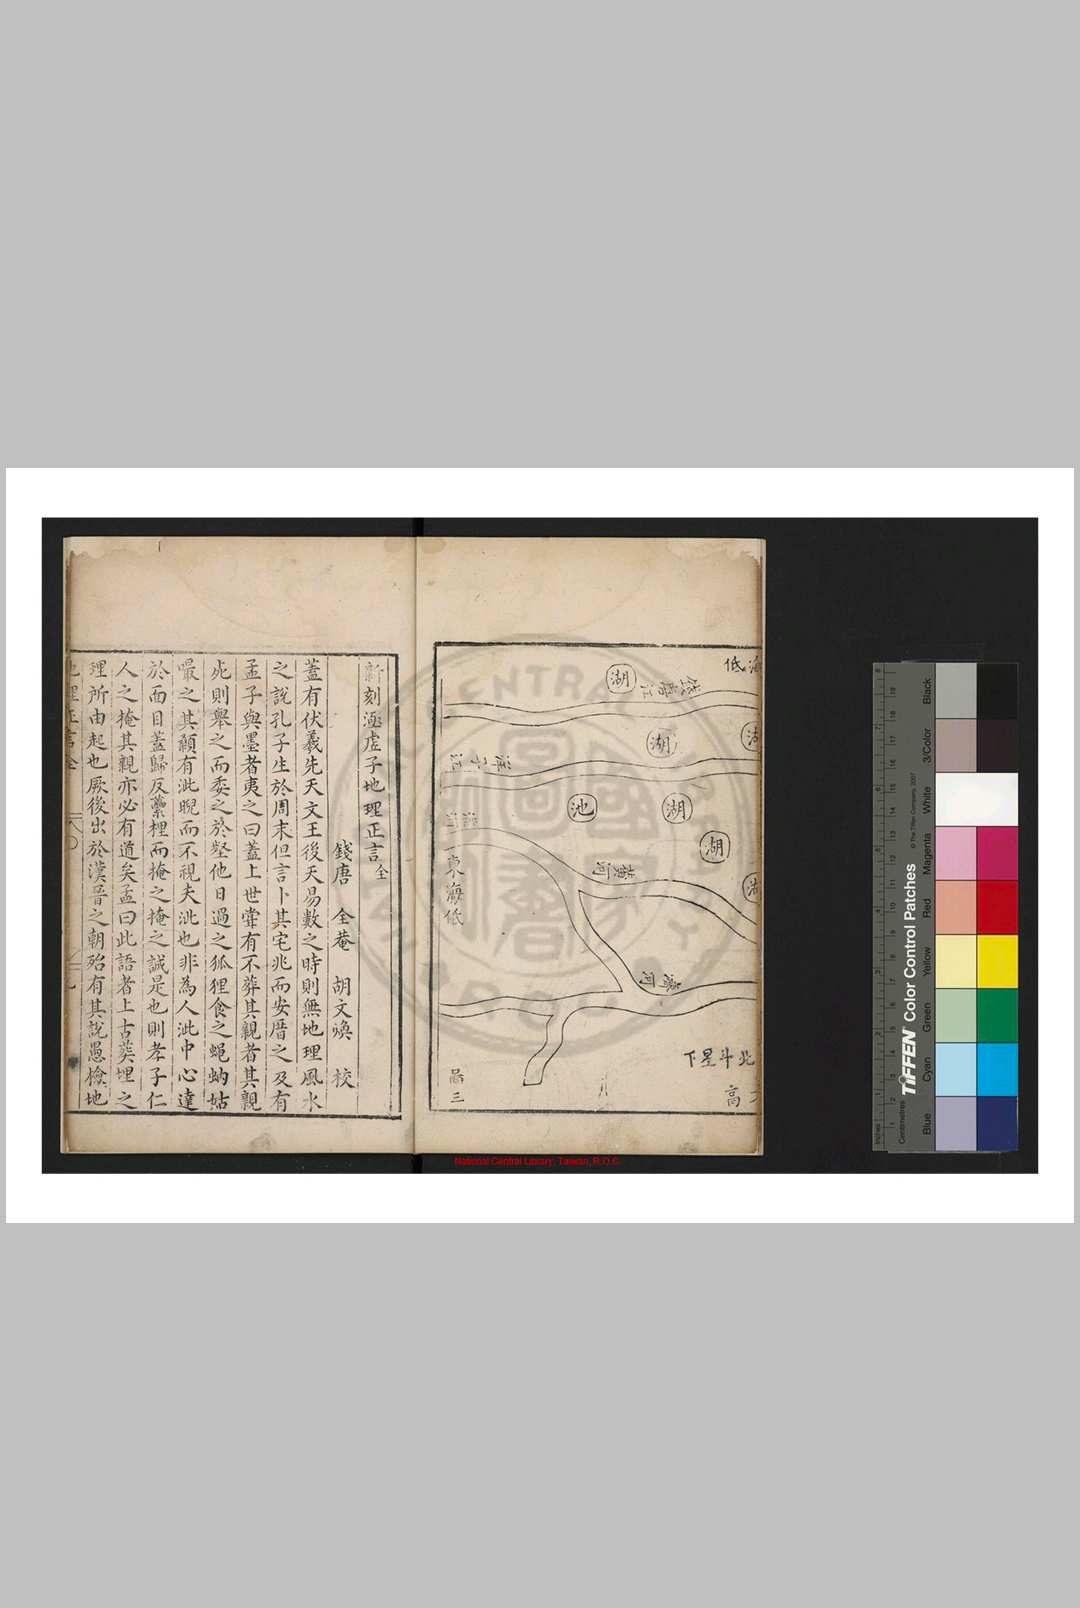 低
湖
湖
湖
池
湖
黃河
東海低
北斗星下
高
三
新刻涵虛子地理正言全
錢唐 全菴 胡文煥 校
蓋有伏羲先天文王後天易數之時則無地理風水
之說孔子生於周末但言卜其宅兆而安厝之及有
孟子與墨者夷之曰蓋上世嘗有不葬其親者其親
死則舉之而委之於壑他日過之狐狸食之蠅蚋姑
嘬之其顙有泚睨而不視夫泚也非為人泚中心達
於面目蓋歸反虆梩而掩之掩之誠是也則孝子仁
人之掩其親亦必有道矣孟曰此語者上古葬埋之
理所由起也厥後出於漢晉之朝殆有其說愚檢地
National Central Library, Taiwan, R.O.C
CENTRAL
TIFFEN Color Control Patches
© The Tiffen Company, 2007
Centimetres
Inches
Blue
Cyan
Green
Yellow
Red
Magenta
White
3/Color
Black